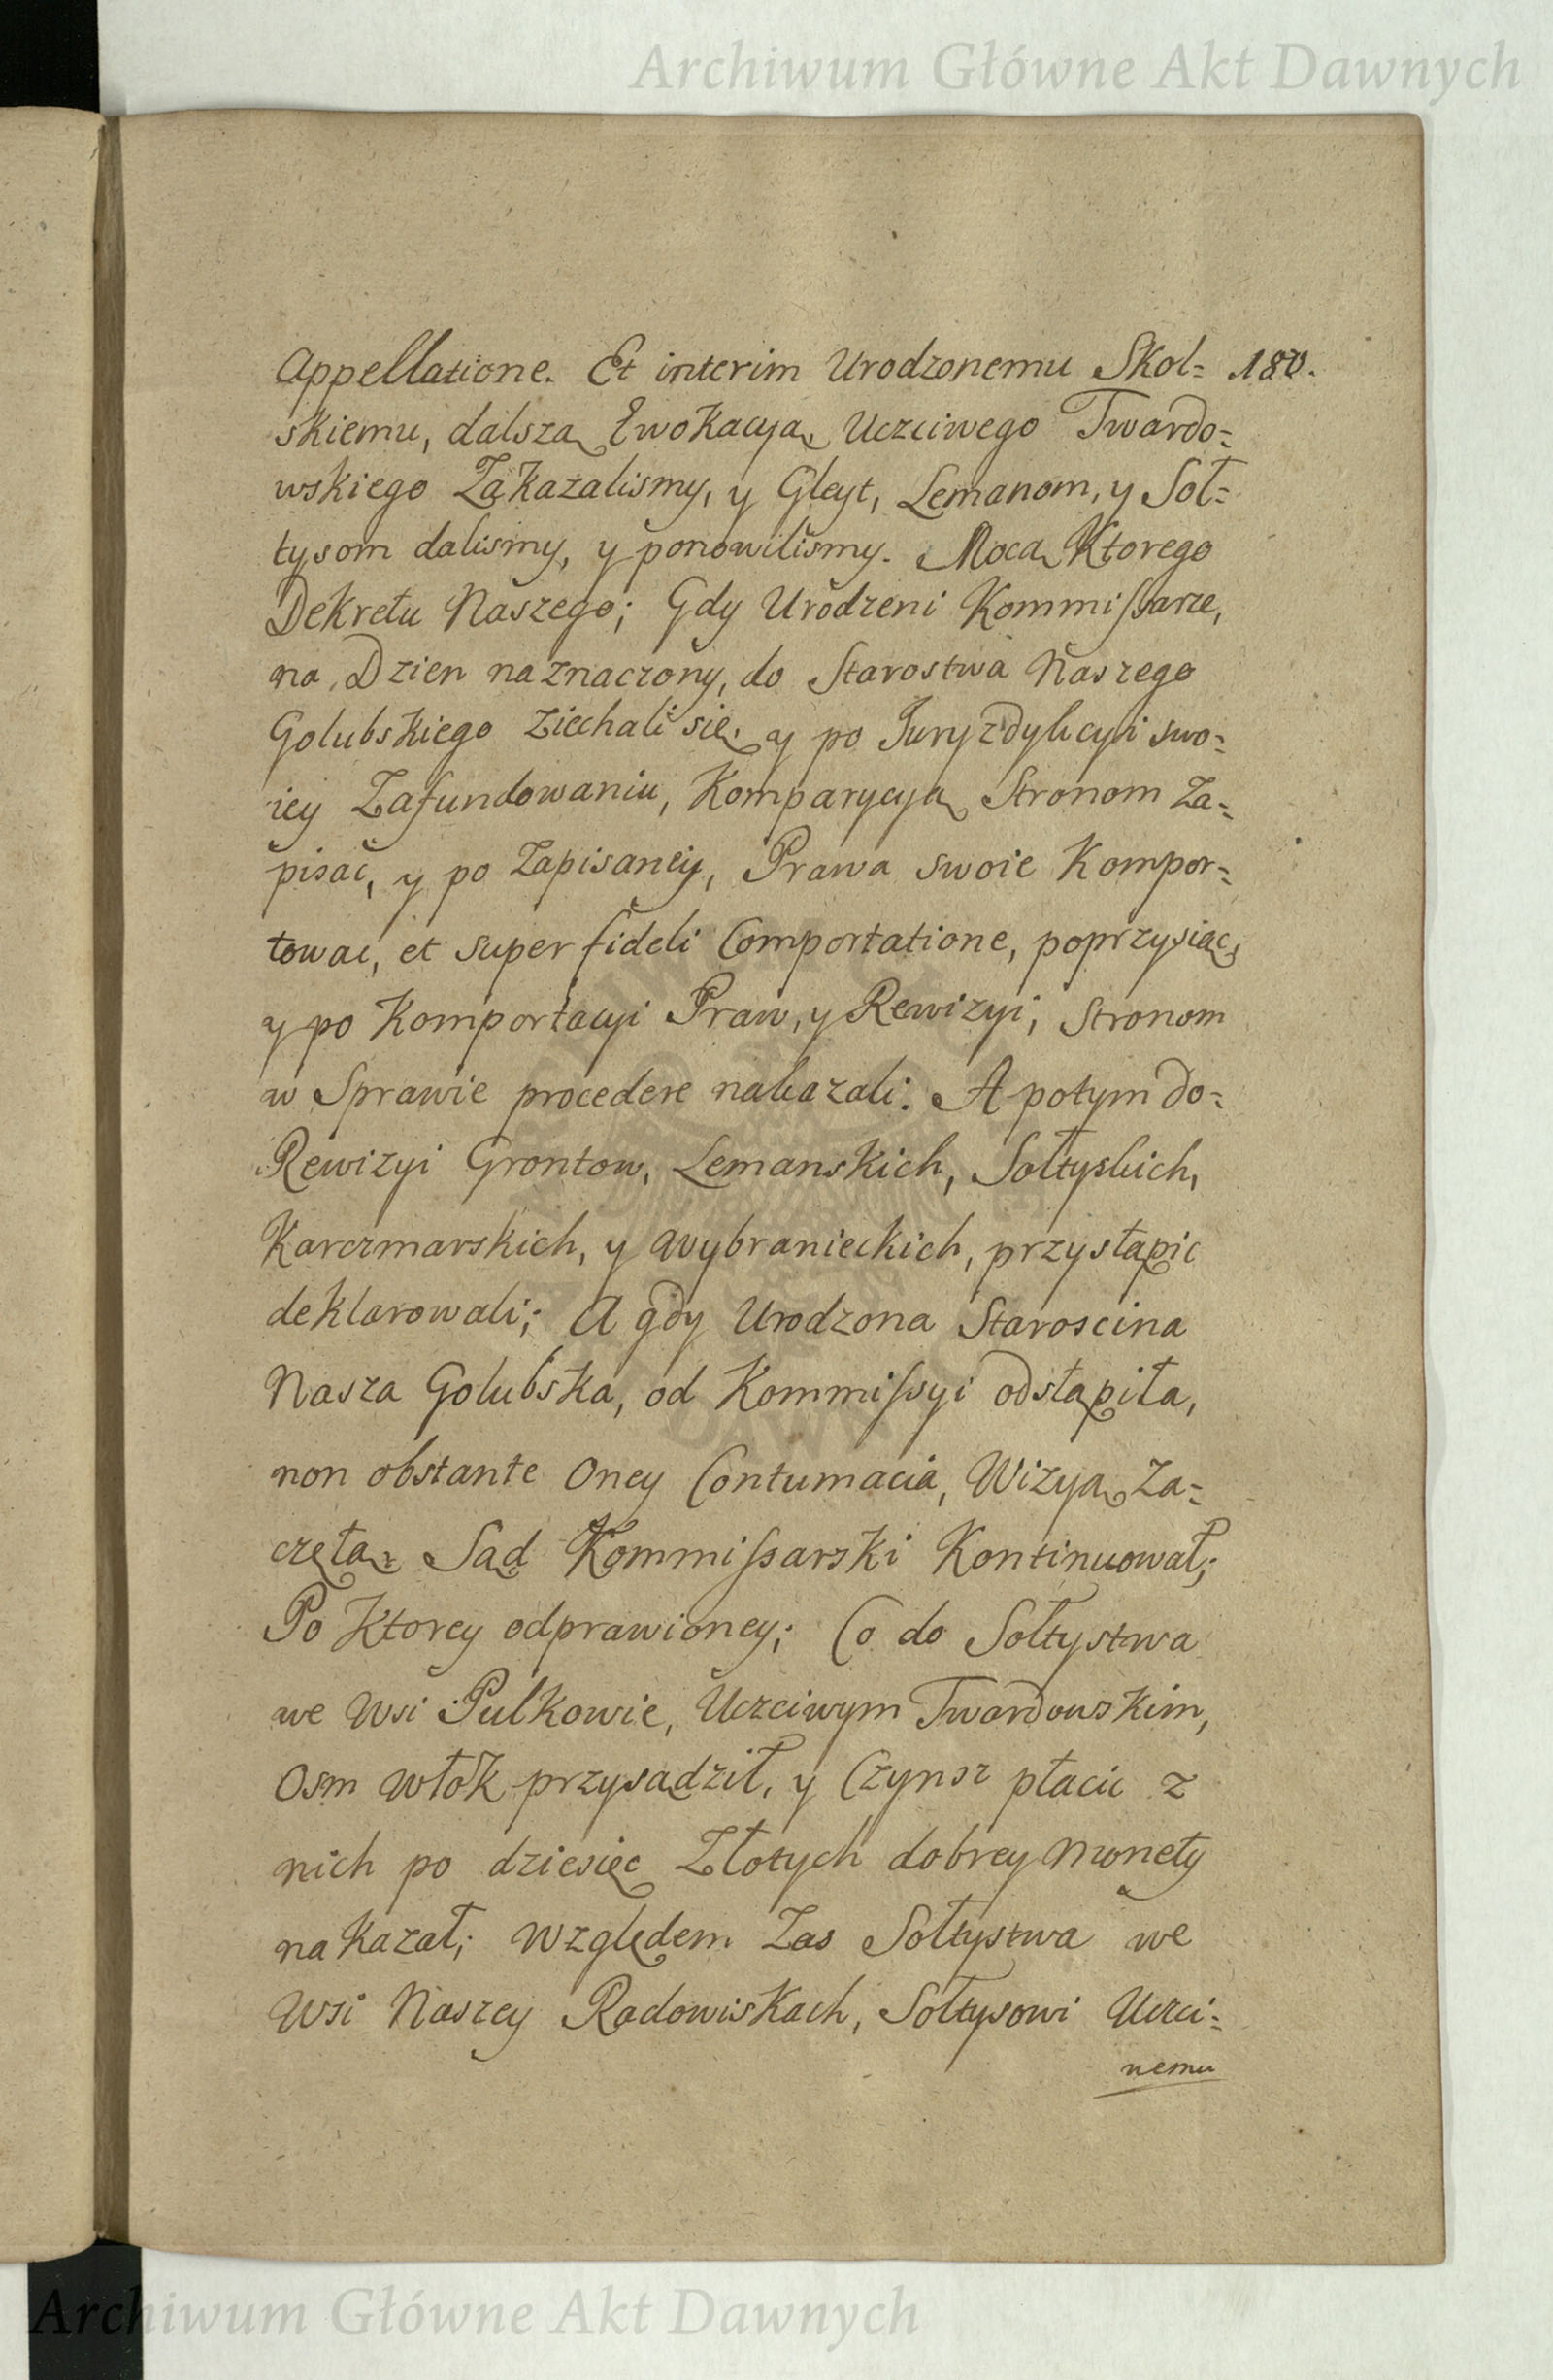 Archiwum Główne Akt Dawnych
Appellatione. Et interim Urodzonemu Skol= 180.
skiemu, dalszą Ewokacyą, Uczciwego Twardo=
wskiego Zakazalismy, y Gleyt, Lemanom, y Soł=
tysom dalismy, y ponowilismy. Mocą Ktorego
Dekretu Naszego; Gdy Urodzeni Kommissarze,
na Dzien naznaczony, do Starostwa Naszego
Golubskiego Ziechali się, y po Juryzdykcyi swo=
iey Zafundowaniu, Komparycyą Stronom Za=
pisać, y po Zapisaney, Prawa swoie Kompor=
towac, et super fideli Comportatione, poprzysiąc,
y po Komportacyi Praw, y Rewizyi, Stronom
w Sprawie procedere nakazali. A potym do=
Rewizyi Grontow, Lemanskich, Sołtyskich,
Karczmarskich, y Wybranieckich, przystąpic
deklarowali; A gdy Urodzona Staroscina
Nasza Golubska, od Kommissyi odstąpiła,
non obstante Oney Contumacia, Wizyą Za=
czętą Sąd Kommissarski Kontinuował;
Po Ktorey odprawioney; Co do Sołtystwa
we Wsi Pulkowie, Uczciwym Twardowskim,
Osm Włok przysądził, y Czynsz płacic z
nich po dziesięc Złotych dobrey Monety
nakazał; Względem Zas Sołtystwa we
Wsi Naszey Radowiskach, Sołtysowi Uczci=
nemu
Archiwum Główne Akt Dawnych